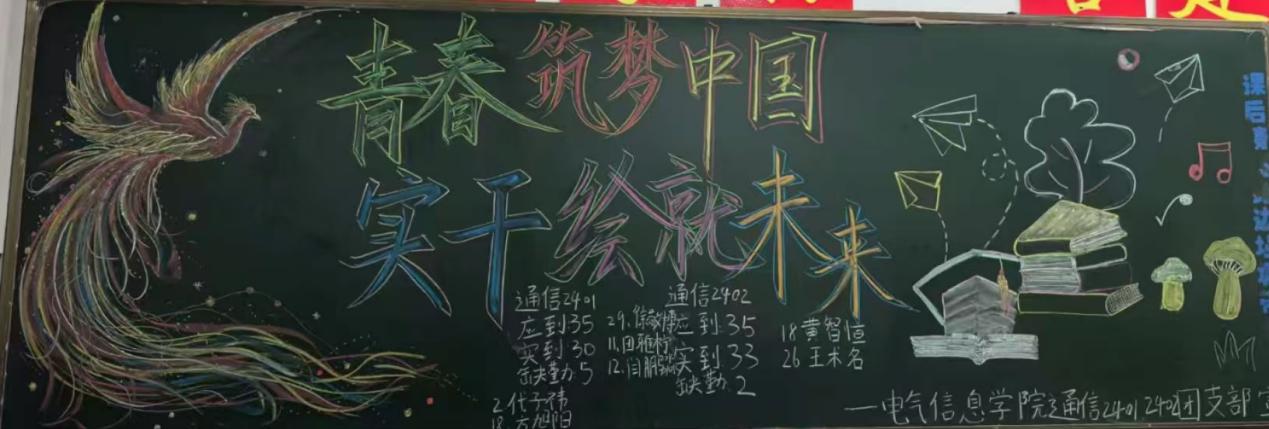 青春筑梦中国
实干绘就未来
通信2401
应到35
实到30
缺勤5
2.代子祎
18.方旭阳
29.
11.田雅柠
12.闫鹏
通信2402
应到:35
实到33
缺勤.2
18黄智恒
26王木名
课后
一电气信息学院通信2401 2402团支部宣